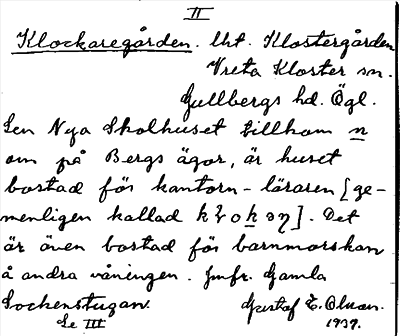 II
Klockaregården. lht. Klostergården
Vreta Kloster sn.
Gullbergs hd. Ögl.
Sen Nya Skolhuset tillkom n
om på Bergs ägor, är huset
bostad för kantorn-läraren [ge-
menligen kallad
Det
är även bostad för barnmorskan
å andra våningen. Jmfr. Gamla
Sockenstugan.
Gustaf E. Olsson.
Se III
1937.